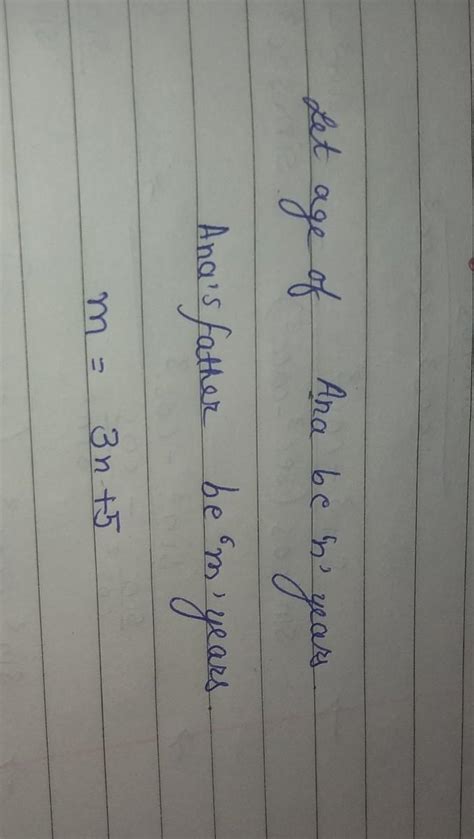 Let age of Ana be 'n' years.
Ana's father be 'm' years.
m = 3n+5